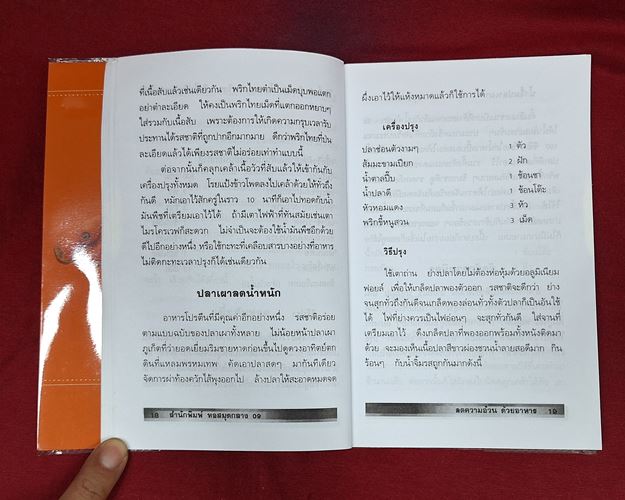 ที่เนื้อสับแล้วเช่นเดียวกัน พริกไทยตำเป็นเม็ดบุบพอแตก
อย่าตำละเอียด ให้คงเป็นพริกไทยเม็ดที่แตกออกหยาบๆ
ใส่รวมกับเนื้อสับ เพราะต้องการให้เกิดความกรุบเวลารับ
ประทานได้รสชาติที่ถูกปากอีกมากมาย ดีกว่าพริกไทยที่ป่น
ละเอียดแล้วได้เพียงรสชาติไม่อร่อยเท่าทำแบบนี้
ต่อจากนั้นก็คลุกเคล้าเนื้อวัวที่สับแล้วให้เข้ากันกับ
เครื่องปรุงทั้งหมด โรยแป้งข้าวโพดลงไปเคล้าด้วยให้ทั่วถึง
กันดี หมักเอาไว้สักครู่ในราว 10 นาทีก็เอาไปทอดกับน้ำ
มันพืชที่เตรียมเอาไว้ได้ ถ้ามีเตาไฟฟ้าที่ทันสมัยเช่นเตา
ไมรโครเวฟก็สะดวก ไม่จำเป็นจะต้องใช้น้ำมันพืชอีกด้วย
ดีไปอีกอย่างหนึ่ง หรือใช้กะทะที่เคลือบสารบางอย่างที่อาหาร
ไม่ติดกะทะเวลาปรุงก็ได้เช่นเดียวกัน
ปลาเผาลดน้ำหนัก
อาหารโปรตีนที่มีคุณค่าอีกอย่างหนึ่ง รสชาติอร่อย
ตามแบบฉบับของปลาเผาทั้งหลาย ไม่น้อยหน้าปลาเผา
ภูเก็ตที่ว่ายอดเยี่ยมริมชายหาดก่อนขึ้นไปดูดวงอาทิตย์ตก
ดินที่แหลมพรหมเทพ คัดเอาปลาสดๆ มากันทีเดียว
จัดการผ่าท้องควักไส้พุงออกไป ล้างปลาให้สะอาดหมดจด
18 สำนักพิมพ์ หอสมุดกลาง 09
ผึ่งเอาไว้ให้แห้งหมาดแล้วก็ใช้การได้
เครื่องปรุง
ปลาช่อนตัวงามๆ 1 ตัว
ส้มมะขามเปียก 2 ฝัก
น้ำตาลปี๊บ 1 ช้อนชา
น้ำปลาดี 1 ช้อนโต๊ะ
หัวหอมแดง 3 หัว
พริกขี้หนูสวน 3 เม็ด
วิธีปรุง
ใช้เตาถ่าน ย่างปลาโดยไม่ต้องห่อหุ้มด้วยอลูมิเนียม
ฟอยส์ เพื่อให้เกล็ดปลาพองตัวออก รสชาติจะดีกว่า ย่าง
จนสุกทั่วถึงกันดีจนเกล็ดพองล่อนทั่วทั้งตัวปลาก็เป็นอันใช้
ได้ ไฟที่ย่างควรเป็นไฟอ่อนๆ จะสุกทั่วกันดี ใส่จานที่
เตรียมเอาไว้ ดึงเกล็ดปลาที่พองออกพร้อมทั้งหนังติดมา
ด้วย จะมองเห็นเนื้อปลาสีขาวผ่องชวนน้ำลายสอดีมาก กิน
ร้อนๆ กับน้ำจิ้มรสถูกกันมากดังนี้
ลดความอ้วน ด้วยอาหาร 19